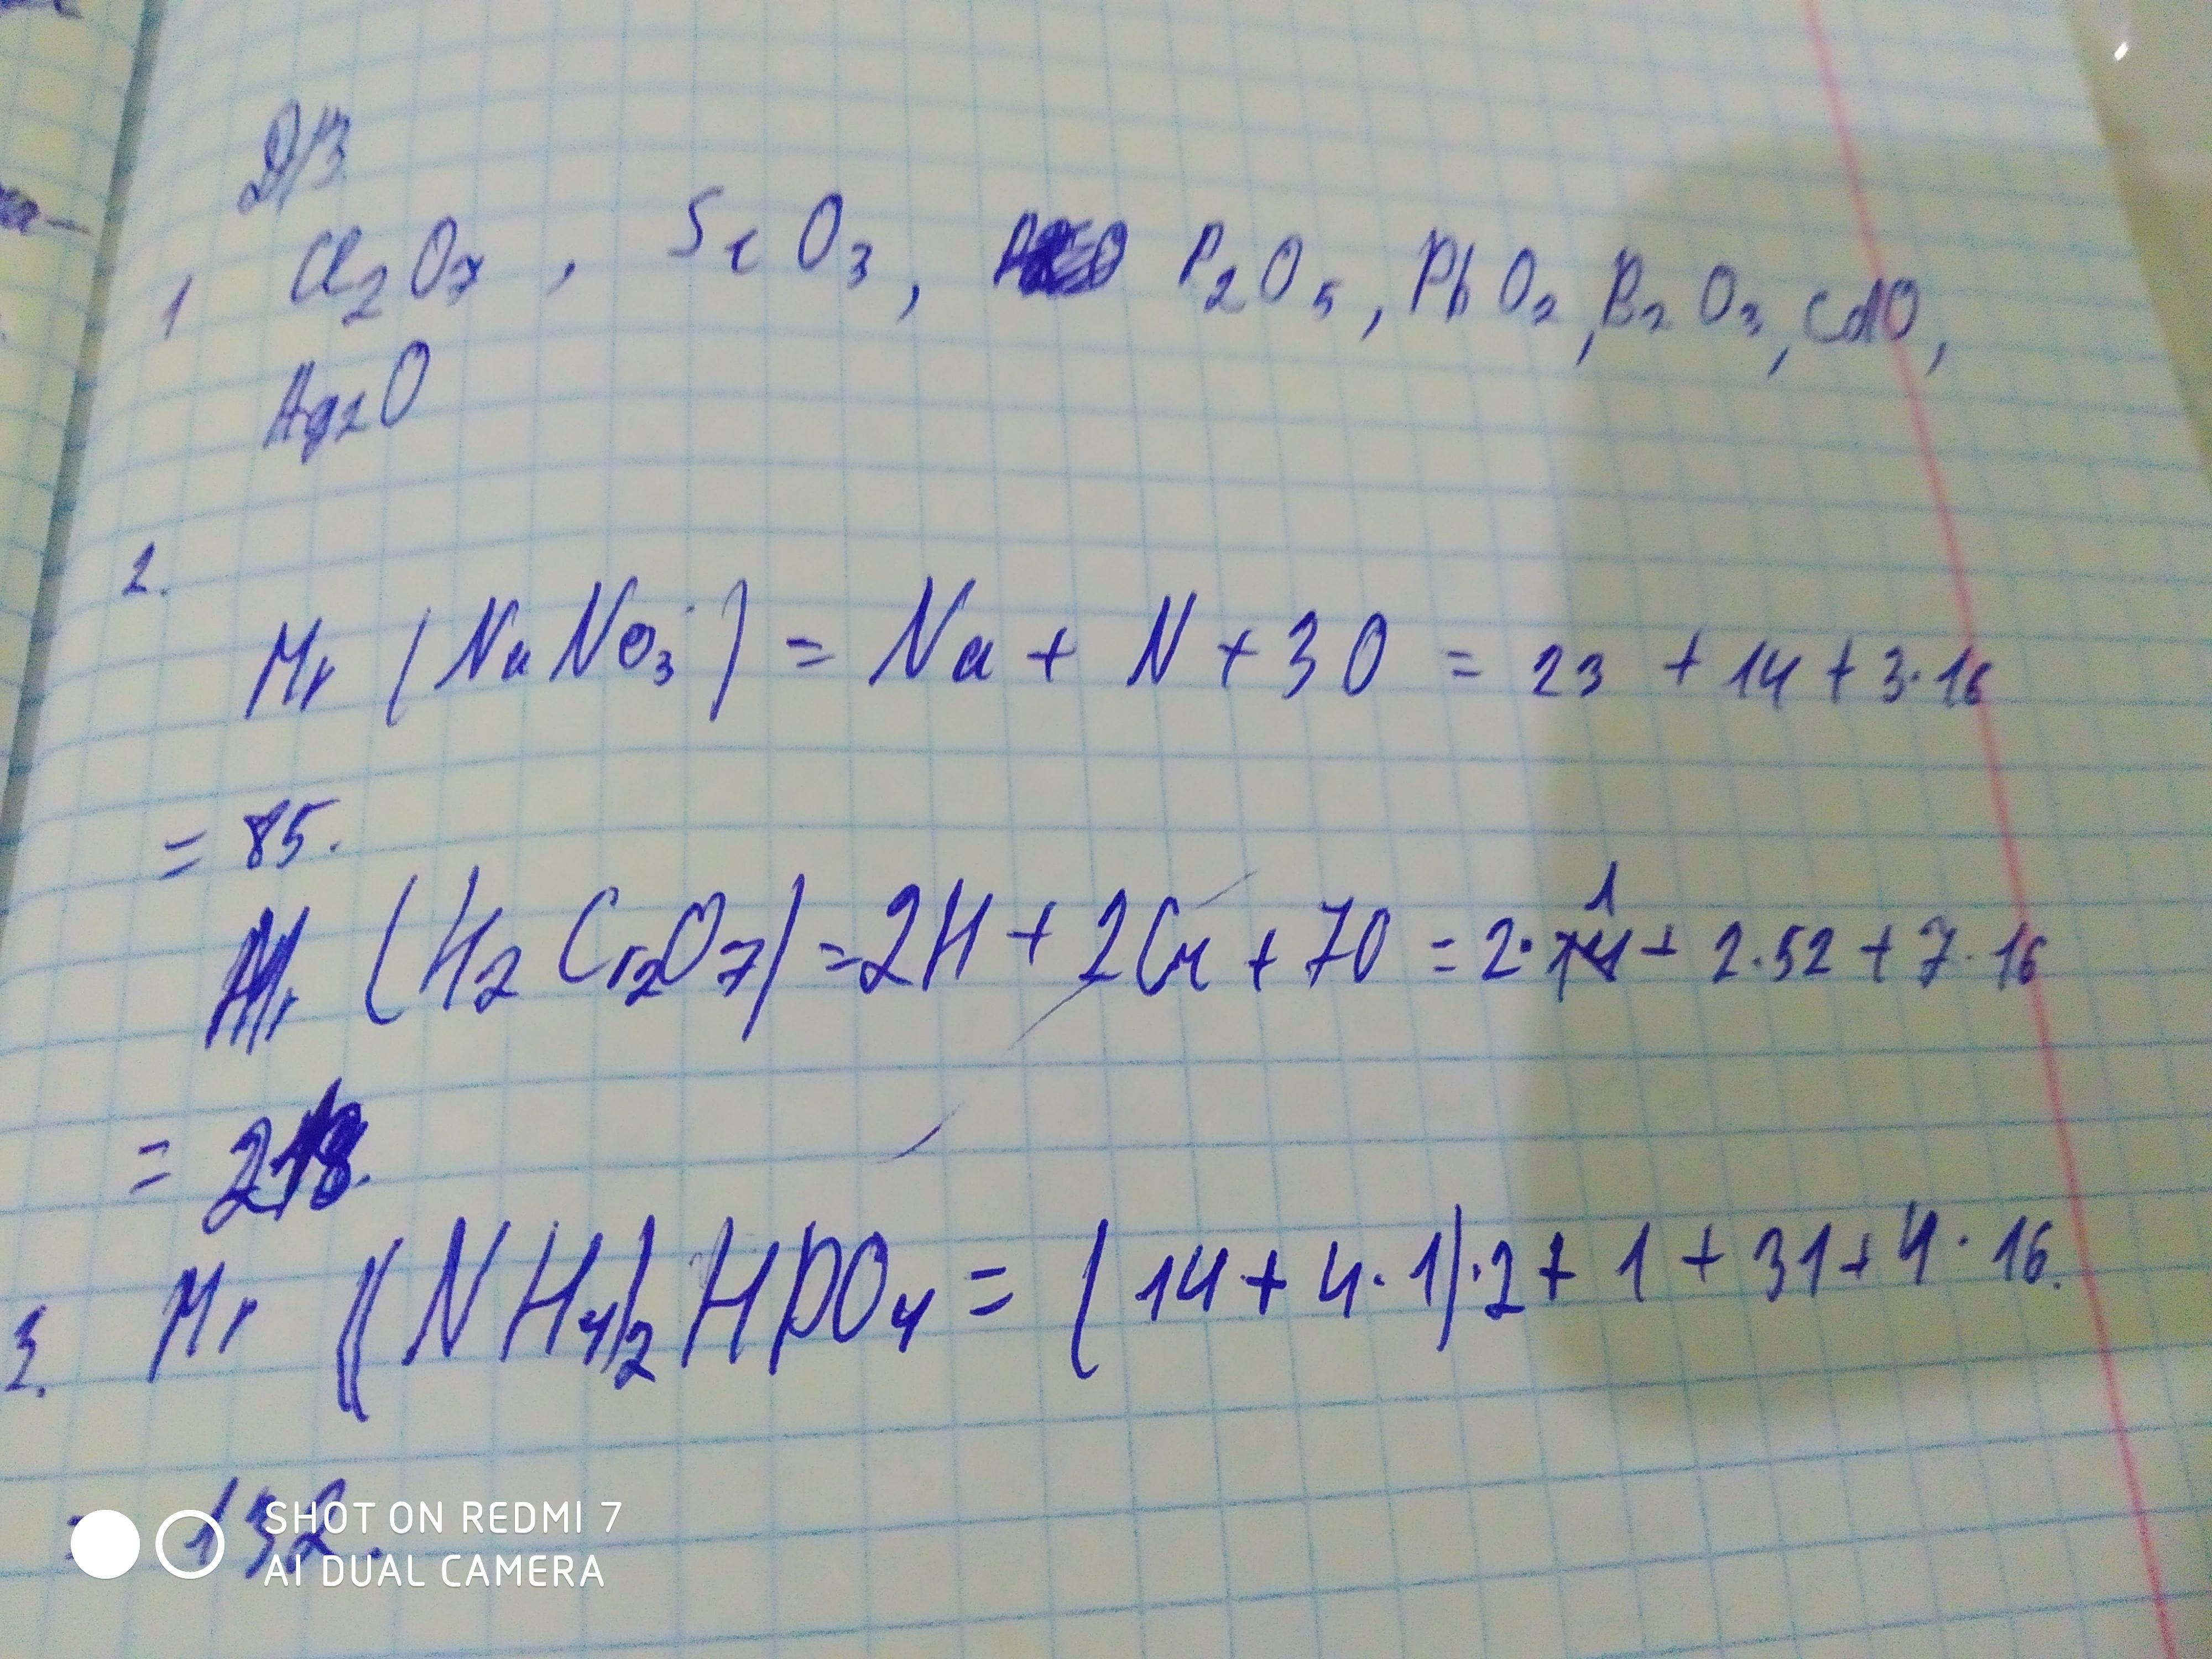 Д/З
1 Cl₂O₇, SeO₃, P₂O₅, PbO₂, B₂O₃, CdO,
Ag₂O
2.
Mr (NaNO₃) = Na + N + 3O = 23 + 14 + 3·16
= 85.
Mr (H₂Cr₂O₇) = 2H + 2Cr + 7O = 2·1 + 2·52 + 7·16
= 218.
3. Mr ((NH₄)₂HPO₄ = (14 + 4·1)·2 + 1 + 31 + 4·16.
= 132.
SHOT ON REDMI 7
AI DUAL CAMERA